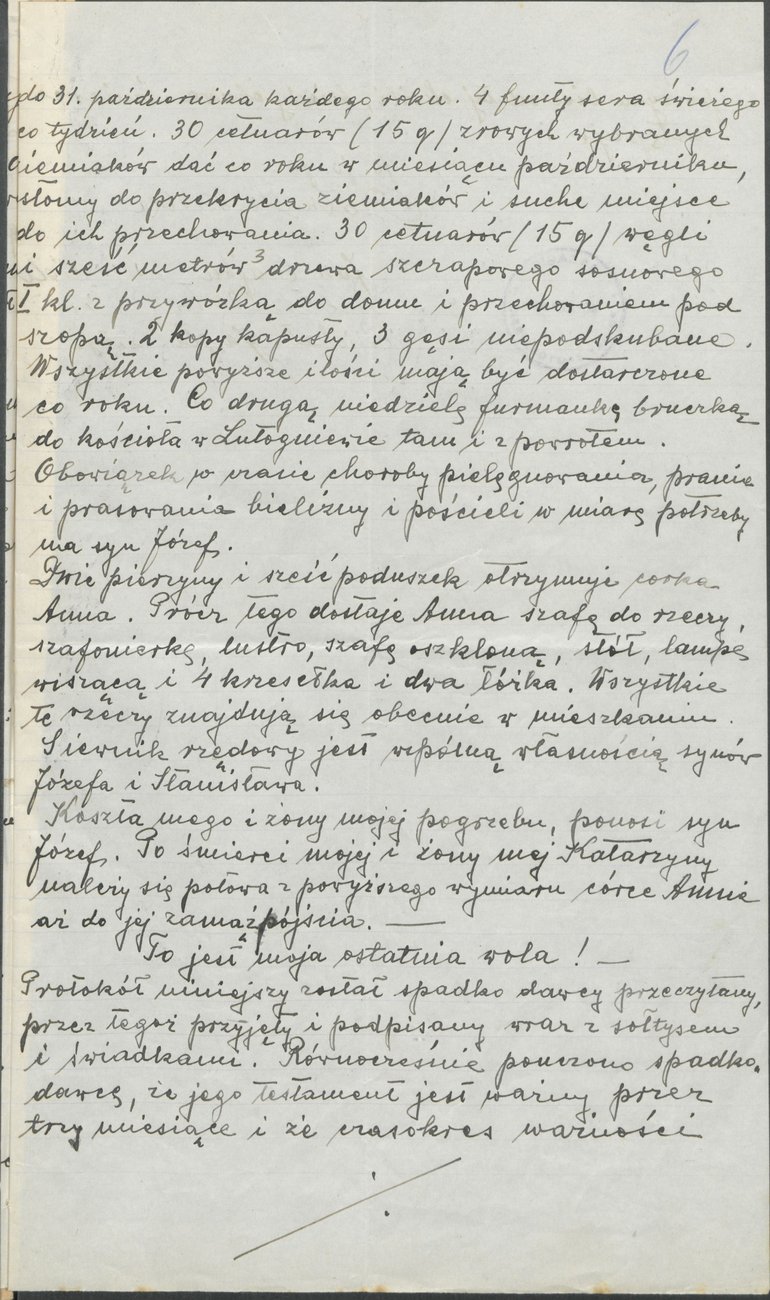 6
do 31. października każdego roku. 4 funty sera świeżego
co tydzień. 30 cetnarów (15 q) zrowych wybranych
ziemiaków dać co roku w miesiącu październiku,
słomy do przekrycia ziemiaków i suche miejsce
do ich przechowania. 30 cetnarów (15 q) węgli
i sześć metrów³ drzewa szczapowego sosnowego
I kl. z przywózką do domu i przechowaniem pod
szopą. 2 kopy kapusty, 3 gęsi niepodskubane.
Wszystkie powyższe ilości mają być dostarczone
co roku. Co drugą niedzielę furmankę bruczką
do kościoła w Lutogniewie tam i z powrotem.
Obowiązek w czasie choroby pielęgnowania, pranie
i prasowania bielizny i pościeli w miarę potrzeby
ma syn Józef.
Dwie pierzyny i sześć poduszek otrzymuje corka
Anna. Prócz tego dostaje Anna szafę do rzeczy,
szafonierkę, lustro, szafę oszkloną, stół, lampę
wiszącą i 4 krzesełka i dwa łóżka. Wszystkie
te rzęczy znajdują się obecnie w mieszkaniu.
Siewnik rzędowy jest wspólną własnością synów
Józefa i Stanisława.
Koszta mego i żony mojej pogrzebu, ponosi syn
Józef. Po śmierci mojej i żony mej Katarzyny
należy się połowa z powyższego wymiaru córce Annie
aż do jej zamążpójścia. —
To jest moja ostatnia wola! —
Protokół niniejszy został spadko dawcy przeczytany,
przez tegoż przyjęty i podpisany wraz z sołtysem
i świadkami. Równocześnie pouczono spadko-
dawcę, że jego testament jest ważny przez
trzy miesiące i że czasokres ważności